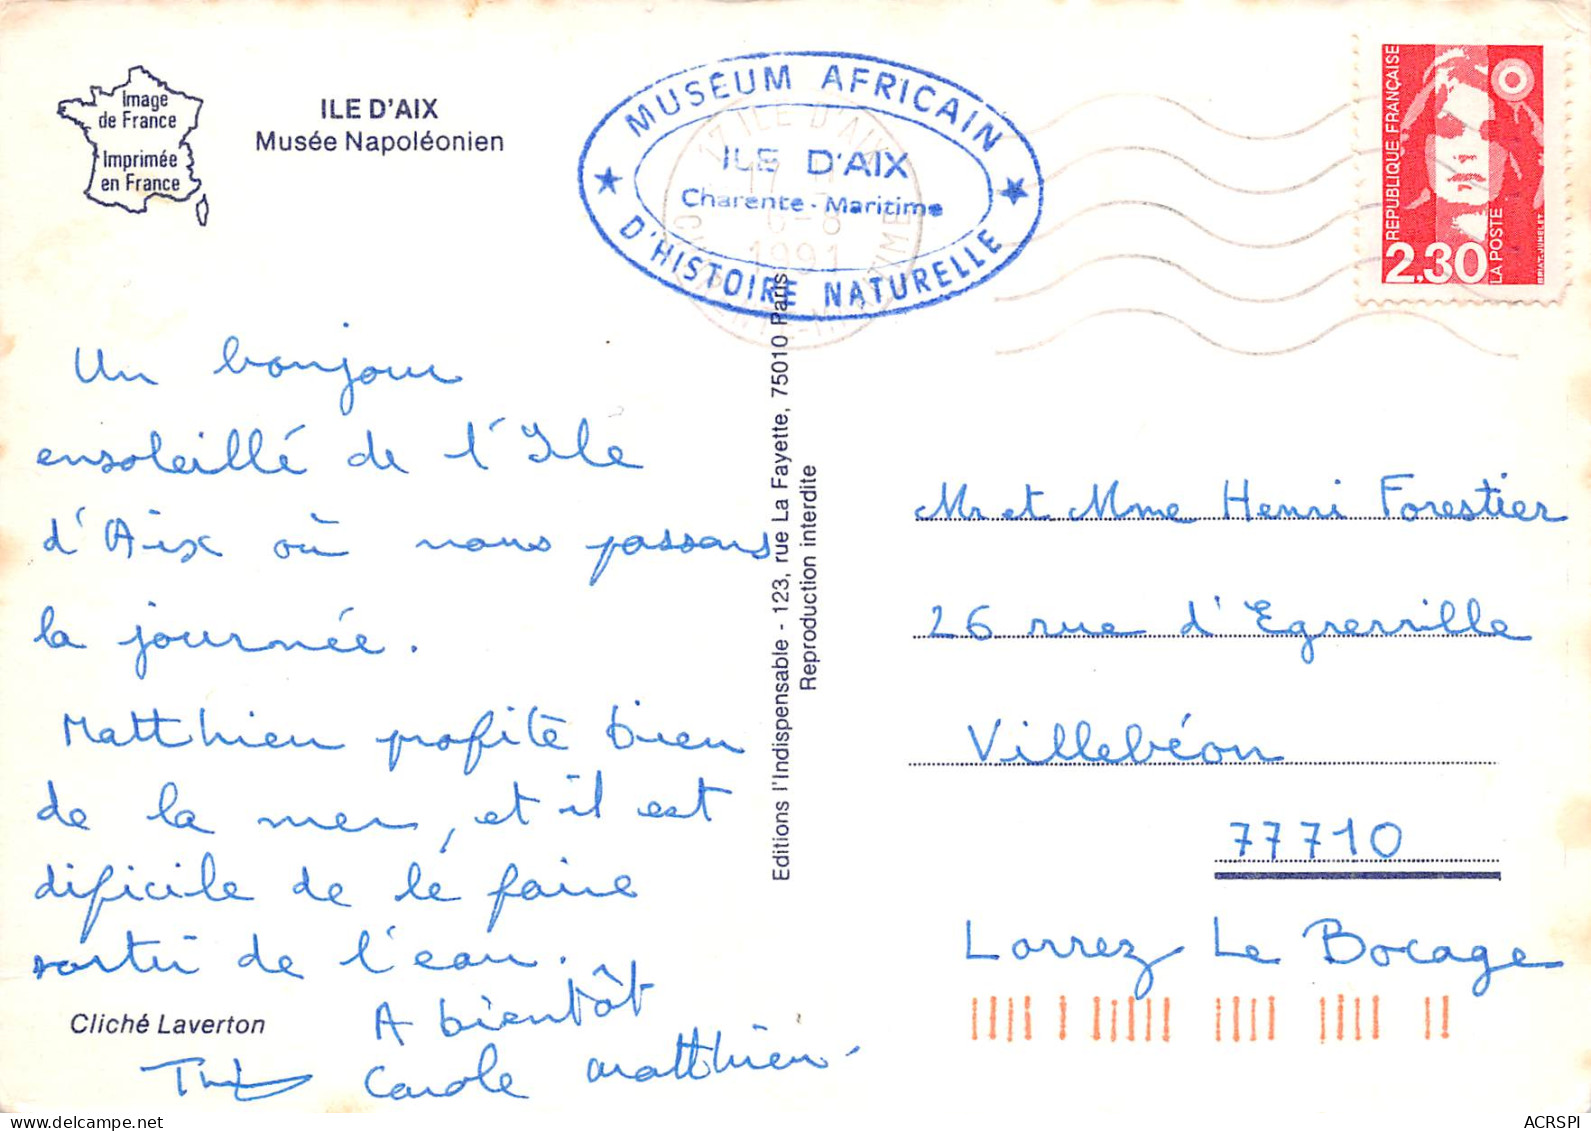 Image
de France
Imprimée
en France
ILE D'AIX
Musée Napoléonien
MUSÉUM AFRICAIN
ILE D'AIX
Charente-Maritime
D'HISTOIRE NATURELLE
17 ILE D'AIX
6-8
1991
REPUBLIQUE FRANÇAISE
2,30
LA POSTE
BRIAT-JUMELET
Un bonjour
ensoleillé de l'Ile
d'Aix où nous passons
la journée.
Matthieu profite bien
de la mer, et il est
dificile de le faire
sortir de l'eau.
A bientôt
Carole Matthieu.
Cliché Laverton
Editions l'Indispensable - 123, rue La Fayette, 75010 Paris
Reproduction interdite
Mr et Mme Henri Forestier
26 rue d'Egreville
Villebéon
77710
Lorrez Le Bocage
ACRSPI